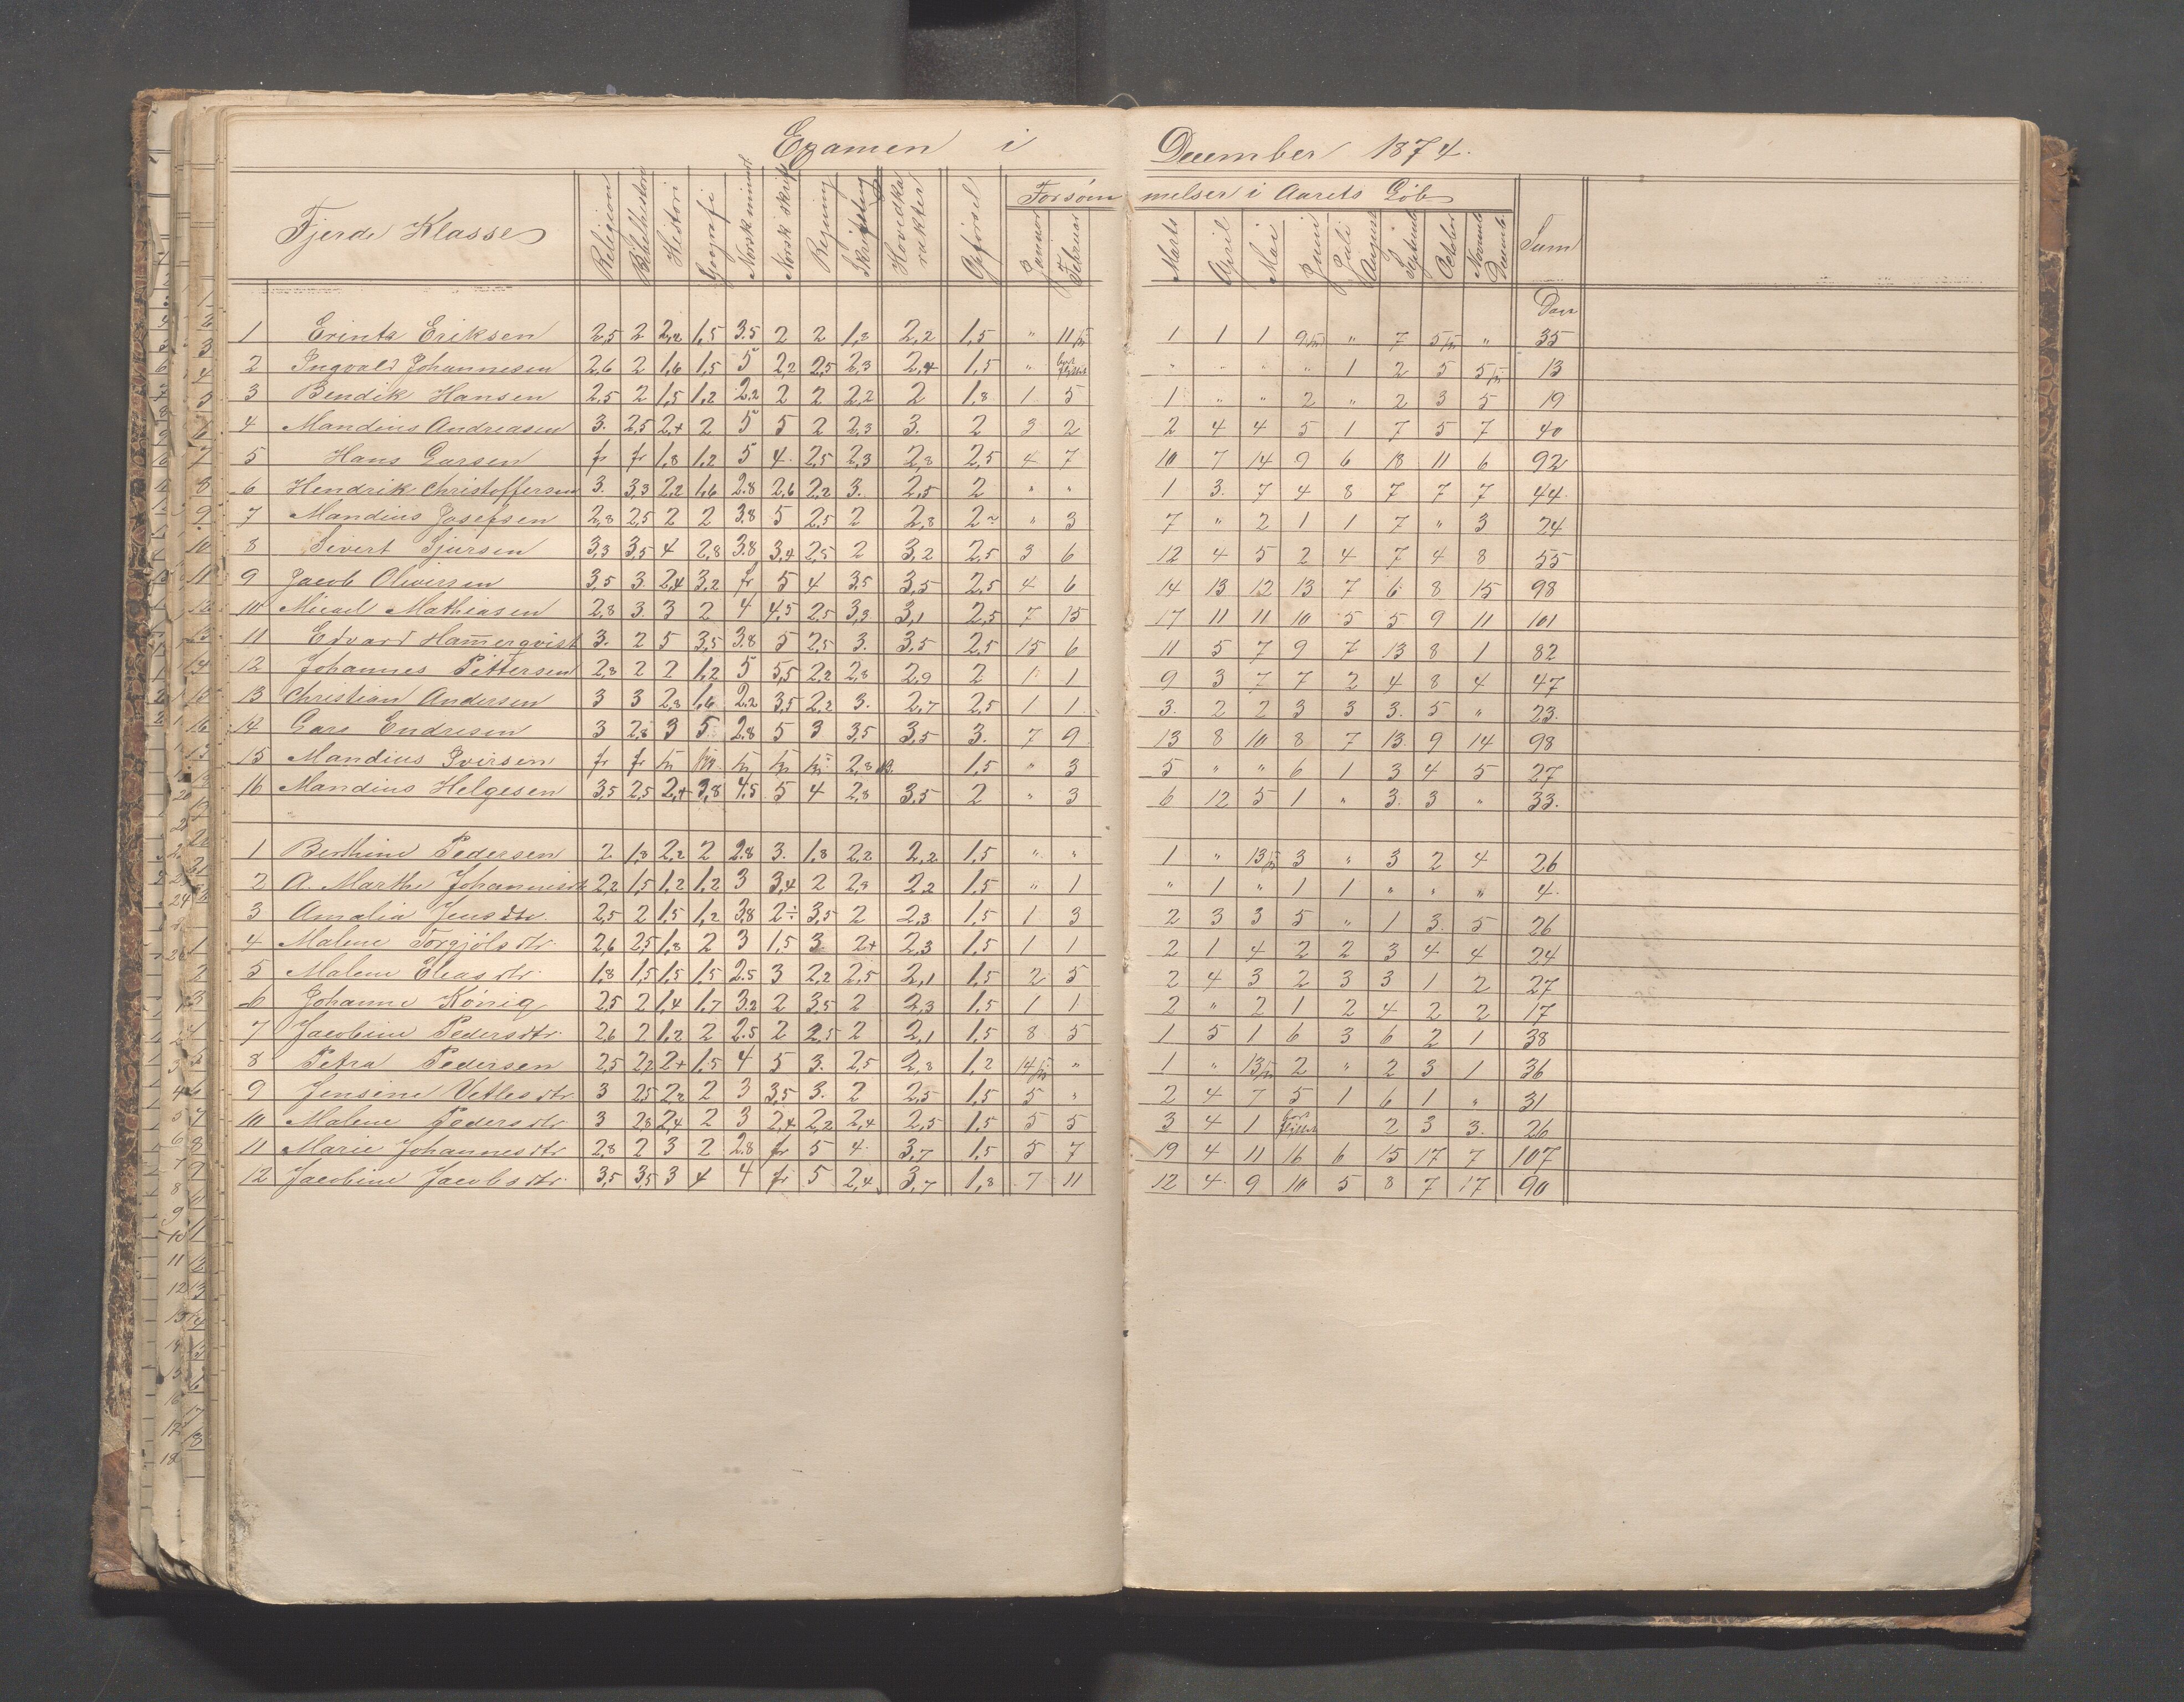 Examen i December 1874.
Fjerde Klasse Religion Bibelhistori Historie Geografi Norsk mundt Norsk skrift Regning Skrivning Hovedkarakter Opførsel Forsømmelser i Aarets Løb Januar Februar Marts April Mai Juni Juli August Septemb October Novemb Decemb. Sum
Dage
1 Erints Eriksen 2,5 2 2,2 1,5 3.5 2 2 1,8 2,2 1,5 " 11 1 1 1 9 " 7 5 " 35
2 Ingvald Johannesen 2,6 2 1,6 1,5 5 2,2 2,5 2,3 2,4 1,5 " bort flyttet " " " " 1 2 5 5 13
3 Bendik Hansen 2,5 2 1,5 1,2 2.2 2 2 2,2 2 1,8 1 5 1 " " 2 " 2 3 5 19
4 Mandius Andreasen 3. 2,5 2,+ 2 5 5 2 2,3 3. 2 3 2 2 4 4 5 1 7 5 7 40
5 Hans Larsen fr fr 1,8 1,2 5 4. 2,5 2,3 2,8 2,5 4 7 10 7 14 9 6 18 11 6 92
6 Hendrik Christoffersen 3. 3,3 2,2 1,6 2.8 2,6 2,2 3. 2,5 2 " " 1 3. 7 4 8 7 7 7 44
7 Mandius Josefsen 2,8 2,5 2 2 3.8 5 2,5 2 2,8 2 " 3 7 " 2 1 1 7 " 3 24
8 Sivert Sjursen 3,3 3,5 4 2,8 3.8 3,4 2,5 2 3,2 2,5 3 6 12 4 5 2 4 7 4 8 55
9 Jacob Olivirsen 3,5 3. 2,4 3,2 fr 5 4 3,5 3,5 2,5 4 6 14 13 12 13 7 6 8 15 98
10 Micael Mathiasen 2,8 3. 3 2 4 4,5 2,5 3,3 3,1 2,5 7 15 17 11 11 10 5 5 9 11 101
11 Edvard Ham̅erqvist 3. 2 5 3,5 3.8 5 2,5 3. 3,5 2,5 15 6 11 5 7 9 7 13 8 1 82
12 Johannes Pettersen 2,8 2 2 1,2 5 5,5 2,2 2,8 2,9 2 1 1 9 3 7 7 2 4 8 4 47
13 Christian Andersen 3 3 2,8 1,6 2.2 3,5 2,2 3. 2,7 2,5 1 1 3. 2 2 3 3 3. 5 " 23.
14 Lars Endresen 3 2,8 3 5 2.8 5 3 3,5 3,5 3. 7 9 13 8 10 8 7 13. 9 14 98
15 Mandius Ivirsen fr fr 2,8 1,5 " 3 5 " " 6 1 3 4 5 27
16 Mandius Helgesen 3,5 2,5 2,+ 3,8 4.5 5 4 2,8 3,5 2 " 3 6 12 5 1 " 3. 3 " 33.
1 Berthine Pedersen 2 1,8 2,2 2 2.8 3. 1,8 2,2 2,2 1,5 " " 1 " 13 3 " 3 2 4 26
2 A. Marthe Johannisdtr 2,2 1,5 1,2 1,2 3 3,4 2 2,3 2,2 1,5 " 1 " 1 " 1 1 " " " 4.
3 Amalia Jensdtr. 2,5 2 1,5 1,2 3,8 2÷ 3,5 2 2,3 1,5 1 3 2 3 3 5 " 1 3. 5 26
4 Malene Torgjölsdtr. 2,6 2,5 1,8 2 3 1,5 3 2+ 2,3 1,5 1 1 2 1 4 2 2 3 4 4 24
5 Malene Eliasdtr. 1,8 1,5 1,5 1,5 2.5 3 2,2 2,5 2,1 1,5 2 5 2 4 3 2 3 3 1 2 27
6 Johanne König 2,5 2 1,4 1,7 3.2 2 3,5 2 2,3 1,5 1 1 2 " 2 1 2 4 2 2 17
7 Jacobine Pedersdtr. 2,6 2 1,2 2 2.5 2 2,5 2 2,1 1,5 8 5 1 5 1 6 3 6 2 1 38
8 Petra Pedersen 2,5 2,2 2+ 1,5 4 5 3. 2,5 2,8 1,2 14 " 1 " 13 2 " 2 3 1 36
9 Jensine Vetlesdtr 3 2,5 2,2 2 3 3,5 3. 2 2,5 1,5 5 " 2 4 7 5 1 6 1 " 31
10 Malene Pedersdtr 3 2,8 2,4 2 3 2,4 2,2 2,4 2,5 1,5 5 5 3 4 1 bort flyttet 2 3 3. 26
11 Marie Johannesdtr 2,8 2 3 2 2.8 fr 5 4. 3,7 1,5 5 7 19 4 11 16 6 15 17 7 107
12 Jacobine Jacobsdtr. 3,5 3,5 3 4 4 fr 5 2,4 3,7 1,8 7 11 12 4 9 10 5 8 7 17 90